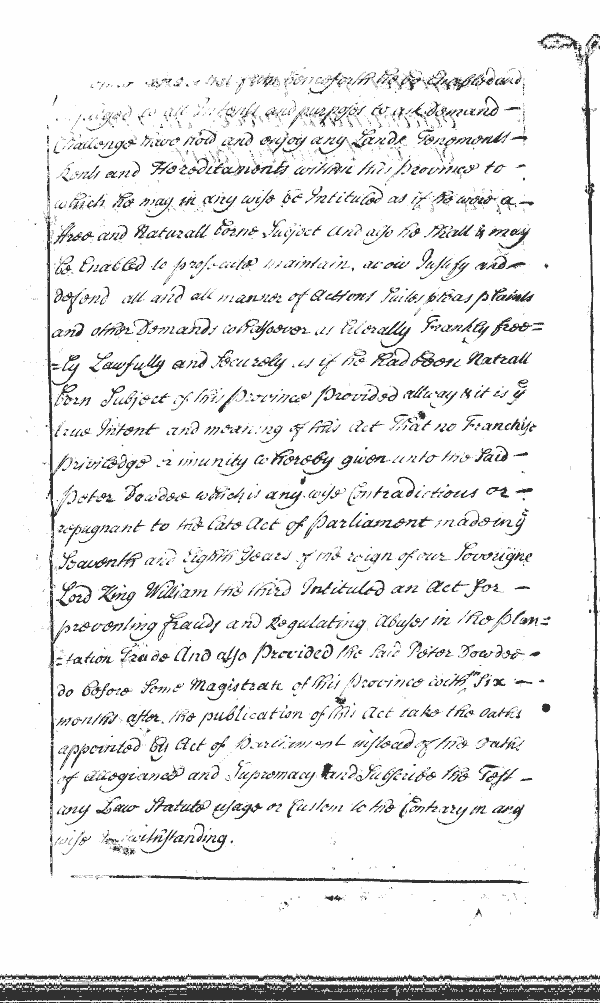 from henceforth he be Enabled and
to all Intents and purposes to ask Demand —
Challenge have hold and enjoy any Lands Tenements —
Rents and Hereditaments within this Province to —
which he may in any wise be Intituled as if he were a —
ffree and Naturall borne Subject And also he shall & may
be Enabled to prosecute maintain, avow Justify and —
defend all and all manner of Actions Suites pleas plaints
and other Demands whatsoever as liberally Frankly free=
=ly Lawfully and Securely as if he had been Natrall
born Subject of this Province Provided allways & it is y
true Intent and meaning of this Act That no Franchise
Priviledge or imunity whereby given unto the said —
Peter Dowdee which is any wise Contradictious or —
repugnant to the late Act of Parliament made in y
Seaventh and Eighth Years of the reign of our Soverigne
Lord King William the third Intituled an Act for —
preventing frauds and Regulating Abuses in the plan=
=tation Trade And also Provided the said Peter Dowdee —
do before Some Magistrate of this Province with in Six —
months after the publication of this Act take the oaths
appointed by Act of Parliament instead of the oaths
of Allegiance and Supremacy And Subscribe the Test —
any Law Statute usage or Custom to the Contrary in any
wise notwithstanding.